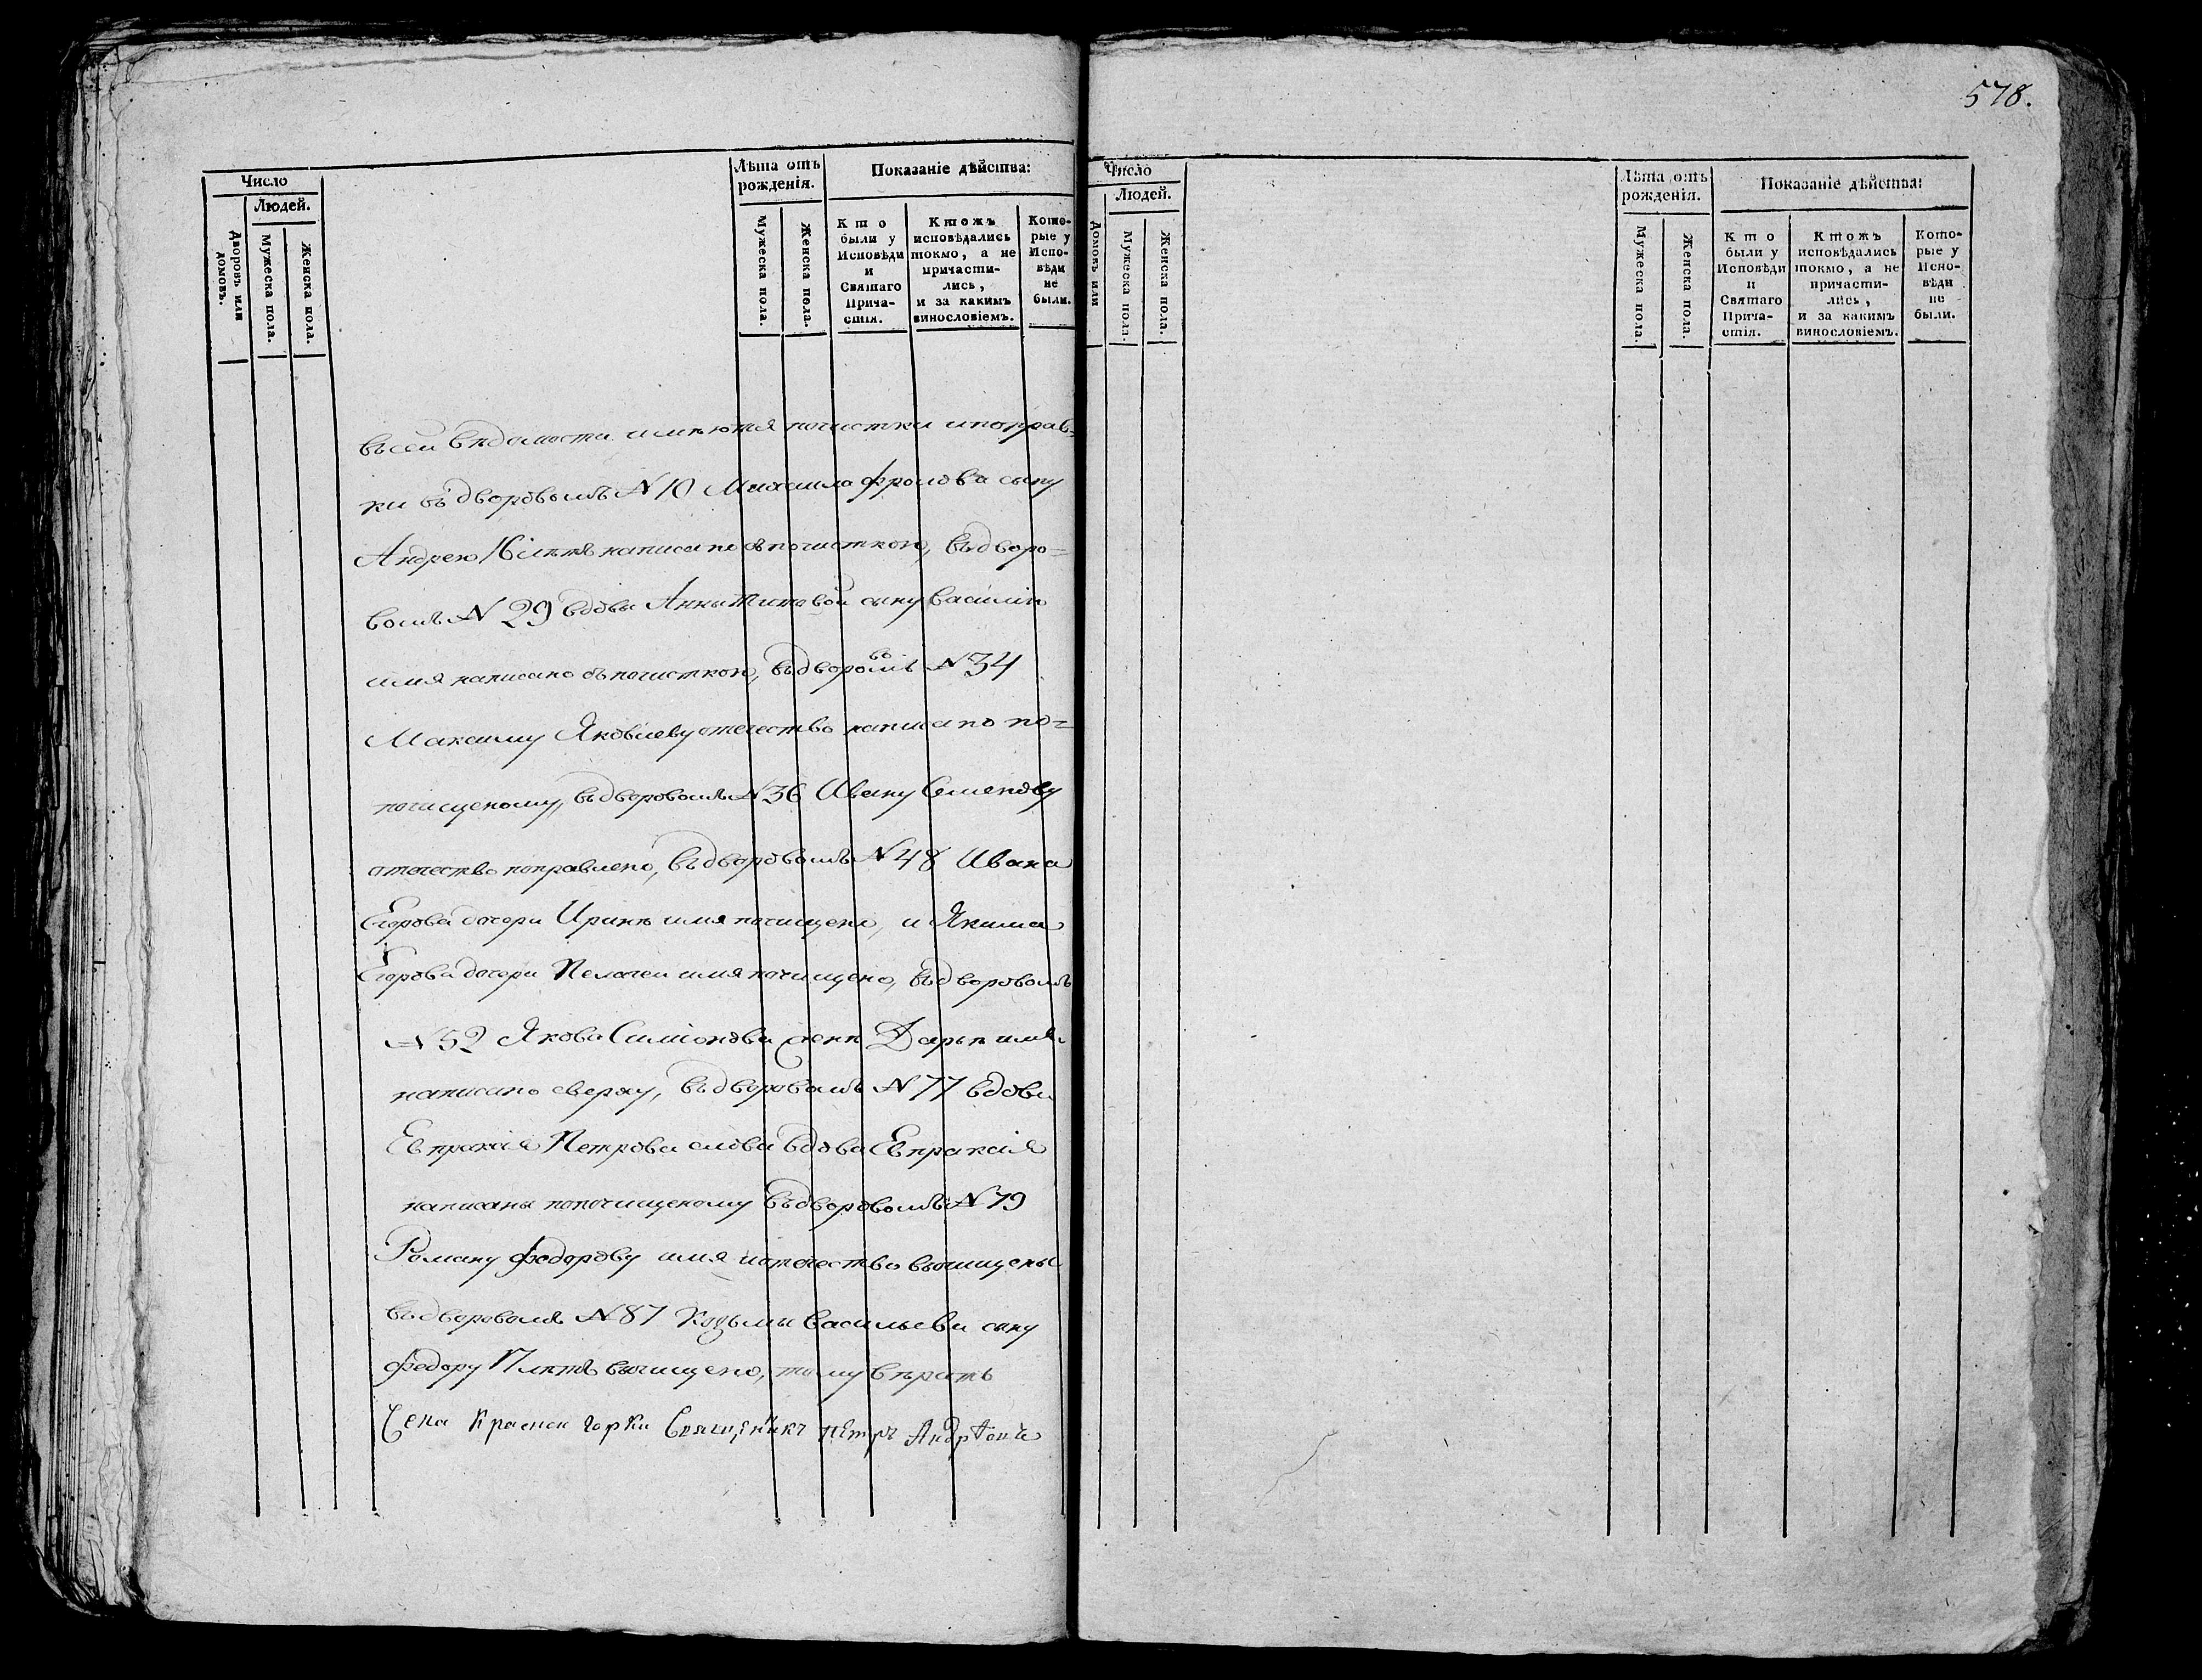 578.
Число
Людей.
Дворовъ или домовъ.
Мужеска пола.
Женска пола.
Лѣта отъ рожденія.
Мужеска пола.
Женска пола.
Показаніе дѣйства:
Кто были у Исповѣди и Святаго Прича-стія.
Ктожъ исповѣдались токмо, а не причасти-лись, и за какимъ винословіемъ.
Кото-рые у Испо-вѣди не были.
въсей вѣдомости имѣются почистки ипоправ=
ки въдворовомъ N 10 Михаила фролова сыну
Андрею 16 лѣтъ написано съпочисткою, въдворо=
вомъ N 29 вдовы Анны Титовой сыну Василію
имя написано съпочисткою, въдворовомъ N 34
Максиму Яковлеву отечество написано по=
почищеному, въдворовомъ N 36 Ивану Семенову
отечество поправлено, въдворовомъ N 48 Ивана
Егорова дочери Иринѣ имя почищено, и Якима
Егорова дочери Пелагеи имя почищено, въдворовомъ
N 52 Якова Симіонова женѣ Дарьѣ имя
написано сверху, въдворовомъ N 77 вдова
Евпраксія Петрова слова вдова Евпраксія
написаны попочищеному въдворовомъ N 79
Роману Федорову имя иотечество вычищены
въдворовомъ N 87 Козьмы Васильева сыну
Федору 17 лѣтъ вычищено, тому вѣрить
Села Красной горки Священникъ Петръ Андрѣевъ
Число
Людей.
Домовъ или
Мужеска пола.
Женска пола.
Лѣта отъ рожденія.
Мужеска пола.
Женска пола.
Показаніе дѣйства:
Кто были у Исповѣди и Святаго Прича-стія.
Ктожъ исповѣдались токмо, а не причасти-лись, и за какимъ винословіемъ.
Кото-рые у Испо-вѣди не были.